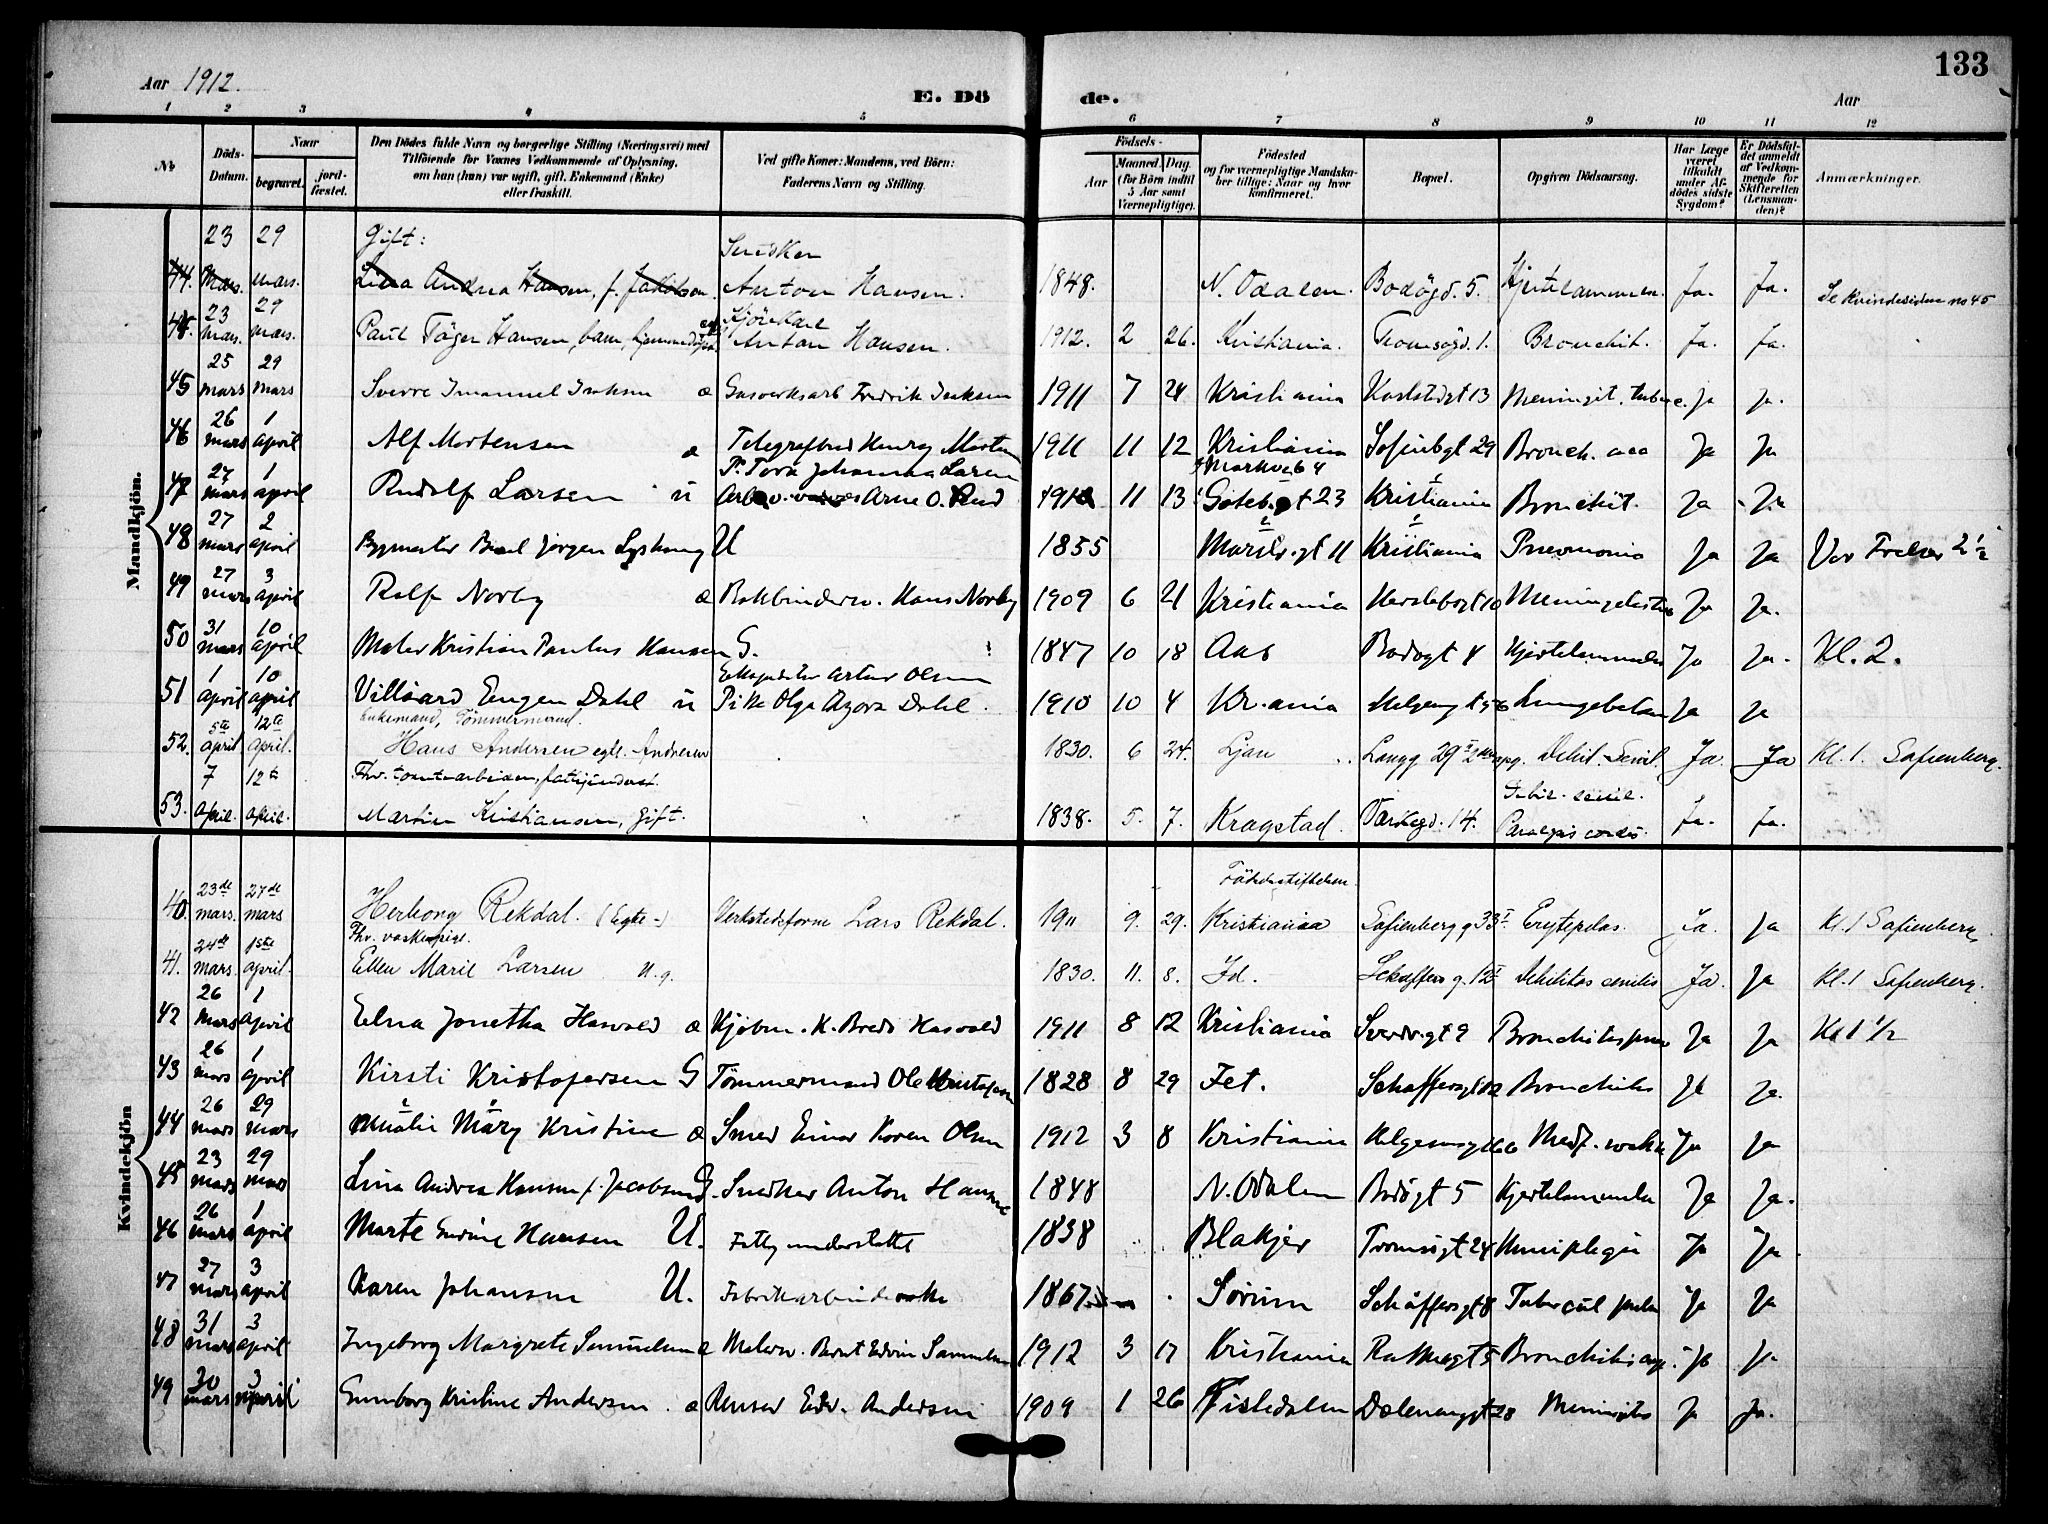 Aar 1912.
E. Dö
de.
Aar
133
1 2 3 4 5 6 7 8 9 10 11 12
№
Döds-Datum.
Naar
begravet.
jordfæstet.
Den Dödes fulde Navn og borgerlige Stilling (Næringsvei) med
Tilföiende for Voxnes Vedkommende af Oplysning,
om han (hun) var ugift, gift, Enkemand (Enke)
eller fraskilt.
Ved gifte Koner: Mandens, ved Börn:
Faderens Navn og Stilling.
Födsels-
Aar
Maaned. Dag.
(for Börn indtil
5 Aar samt
Værnepligtige).
Födested
og for værnepligtige Mandskaber tillige: Naar og hvor
konfirmeret.
Bopæl.
Opgiven Dödsaarsag.
Har Læge været tilkaldt under Afdödes sidste Sygdom?
Er Dödsfaldet anmeldt af Vedkommende for Skifteretten (Lensmanden)?
Anmærkninger.
Mandkjön.
23 29 Gift: Snedker
44. mars. mars. Lina Andrea Hansen, f. Jakobsen. Anton Hansen. 1848. N. Odalen. Bodögd. 5. Hjertelammelse. Ja. Ja. Se Kvindesiden no 45
23 29
mars. mars. Paul Hansen, barn, Anton Hansen. 1912. 2 26. Kristiania. Tromsögd. 1. Bronchit. Ja. Ja.
25 29
45 mars mars Sverre Imanuel Isaksen æ Gasverksarb Fredrik Isaksen 1911 7 24 Kristiania 13 Meningit. tuberc. Ja Ja.
26 1
46 mars april Alf Mortensen æ Telegrafbud Henry Morten 1911 11 12 Kristiania Sofienbgt 29 Bronch. Ja Ja
27 1 P. Tora Johanna Larsen Markve 6 4
47 mars april Rudolf Larsen u Arne O. Rud 11 13 Goteb.gt 23 Kristiania Bronchit. Ja Ja
27 2
48 mars april Bygmester Jørgen U 1855 Maridv.gt 11 Kristiania Pneumonia Ja Ja Vor Frelser 2½
27 3
49 mars april Rolf Norby æ Bokbinderv. Hans Norby 1909 6 21 Kristiania Herslebsgt 10 Ja Ja.
31 10
50 mars april Maler Kristian Paulus Hansen G. 1847 10 18 Aas Bodøgt 4 Hjertelammelse Ja Ja. Kl. 2.
1 10 Ekspeditør Artur Olsen
51 april april Eugen Dahl u Pike Olga Dahl. 1910 10 4 Kr.ania Ja Ja
5te 12te Enkemand, Tömmermand.
52. april. april. Hans Andersen egtl. Andresen 1830. 6 24. Ljan Langg 29 Debil. Senil. Ja. Ja Kl. 1. Sofienberg.
7 12te Fhv. tomtearbeider, fattigunderst. Debil. senil.
53. april. april. Martin Kristiansen, Gift. 1838. 5. 7. Kragstad. 14. Paralysis cordis. Ja. Ja.
Kvindekjön
23de 27de Födselsstiftelsen.
40. mars. mars Herborg Rekdal. (Egte-) Verkstedsform Lars Rekdal. 1911 9. 29. Kristiania Sofienberg g 33 I Erysipelas. Ja. Ja Kl. 1 Sofienberg.
24de 1ste Fhv. vaskepige.
41. mars. april. Ellen Marie Larsen U.g. 1830. 11. 8. Id. Schæffers g. 12 I Debilitas senilis Ja. Ja Kl. 1 Sofienberg.
26 1
42 mars april Elna Jonetha Hasvold æ Kjøbm. K. Brede Hasvold 1911 8 12 Kristiania Sverdr.gt 9 Ja Ja Kl 1½
26 1
43 mars april Kirsti Kristofersen G Tømmermand Ole Kristofersen 1828 8 29 Fet. Schæffersgt 12 Bronchitis Ja Ja.
26 29
44 mars mars Mary Kristine æ Smed Einar Koren Olsen 1912 3 8 Kristiania Helgesensgt 66 Medf. svakh Ja Ja
23 29
45 mars mars Lina Andrea Hansen f. Jacobsen G. Snedker Anton Hansen 1848 N. Odalen Bodøgt 5 Hjertelammelse Ja Ja.
26 1
46 mars april Marte Hansen U. Fattigunderstøtte 1838 Blakjer Tromsøgt 24 Hemiplegia Ja Ja
27 3
47 mars april Karen Johansen U. Fabrikarbeiderske 1867 Sørum Schæffersgt 8 Tubercul pulm Ja Ja
31 3
48 mars april Ingeborg Margrete Samuelsen æ Malerv. Bernt Edvin Samuelsen 1912 3 17 Kristiania 5 Bronchitis Ja Ja.
30 3
49 mars april Gunborg Kristine Andersen. æ Renser Edv. Andersen 1909 1 26 Tistedalen Dælenenggt 28 Meningitis Ja Ja.